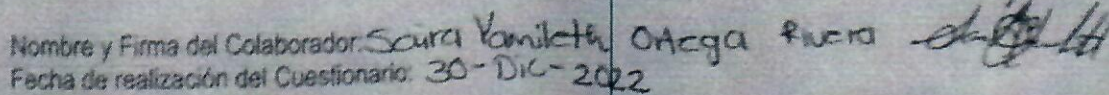 Nombre y Firma del Colaborador: Saura Yamileth Ortega Rivera
Fecha de realización del Cuestionario: 30-Dic-2022